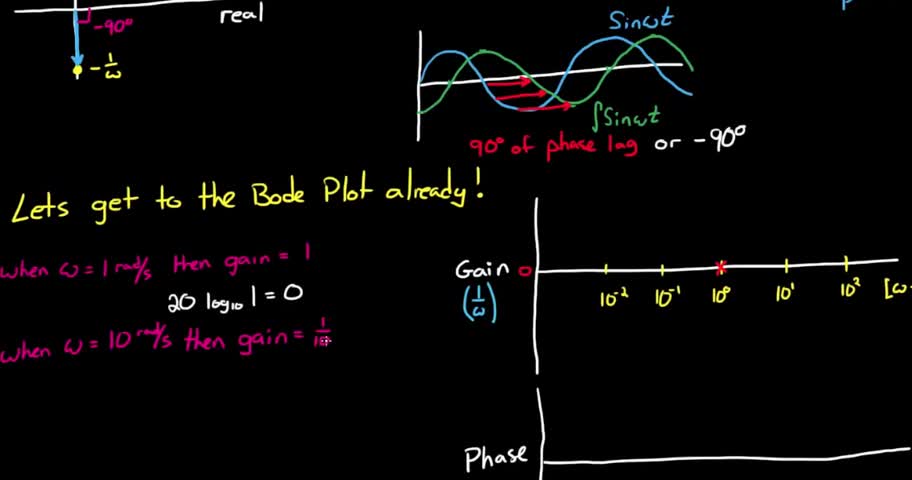 real
-90°
-1/ω
Sinωt
∫Sinωt
90° of phase lag or -90°
Lets get to the Bode Plot already!
when ω = 1 rad/s then gain = 1
20 log₁₀ 1 = 0
when ω = 10 rad/s then gain = 1/10
Gain 0
(1/ω)
10⁻² 10⁻¹ 10⁰ 10¹ 10² [ω
Phase